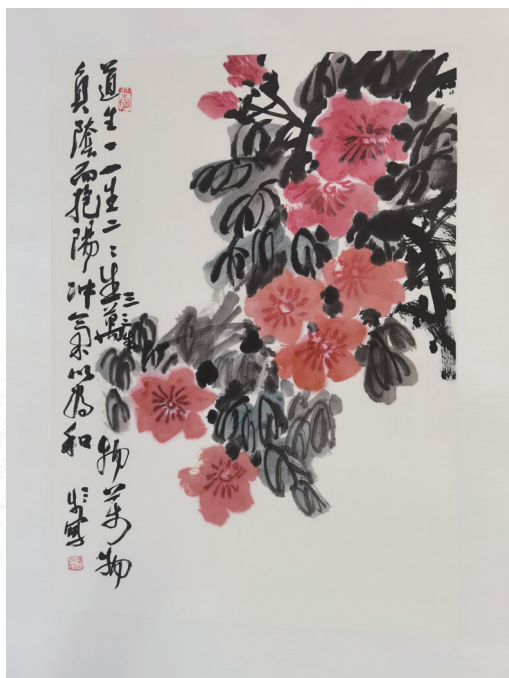 道生一一生二〻生三三生萬物萬物
負陰而抱陽冲氣以為和